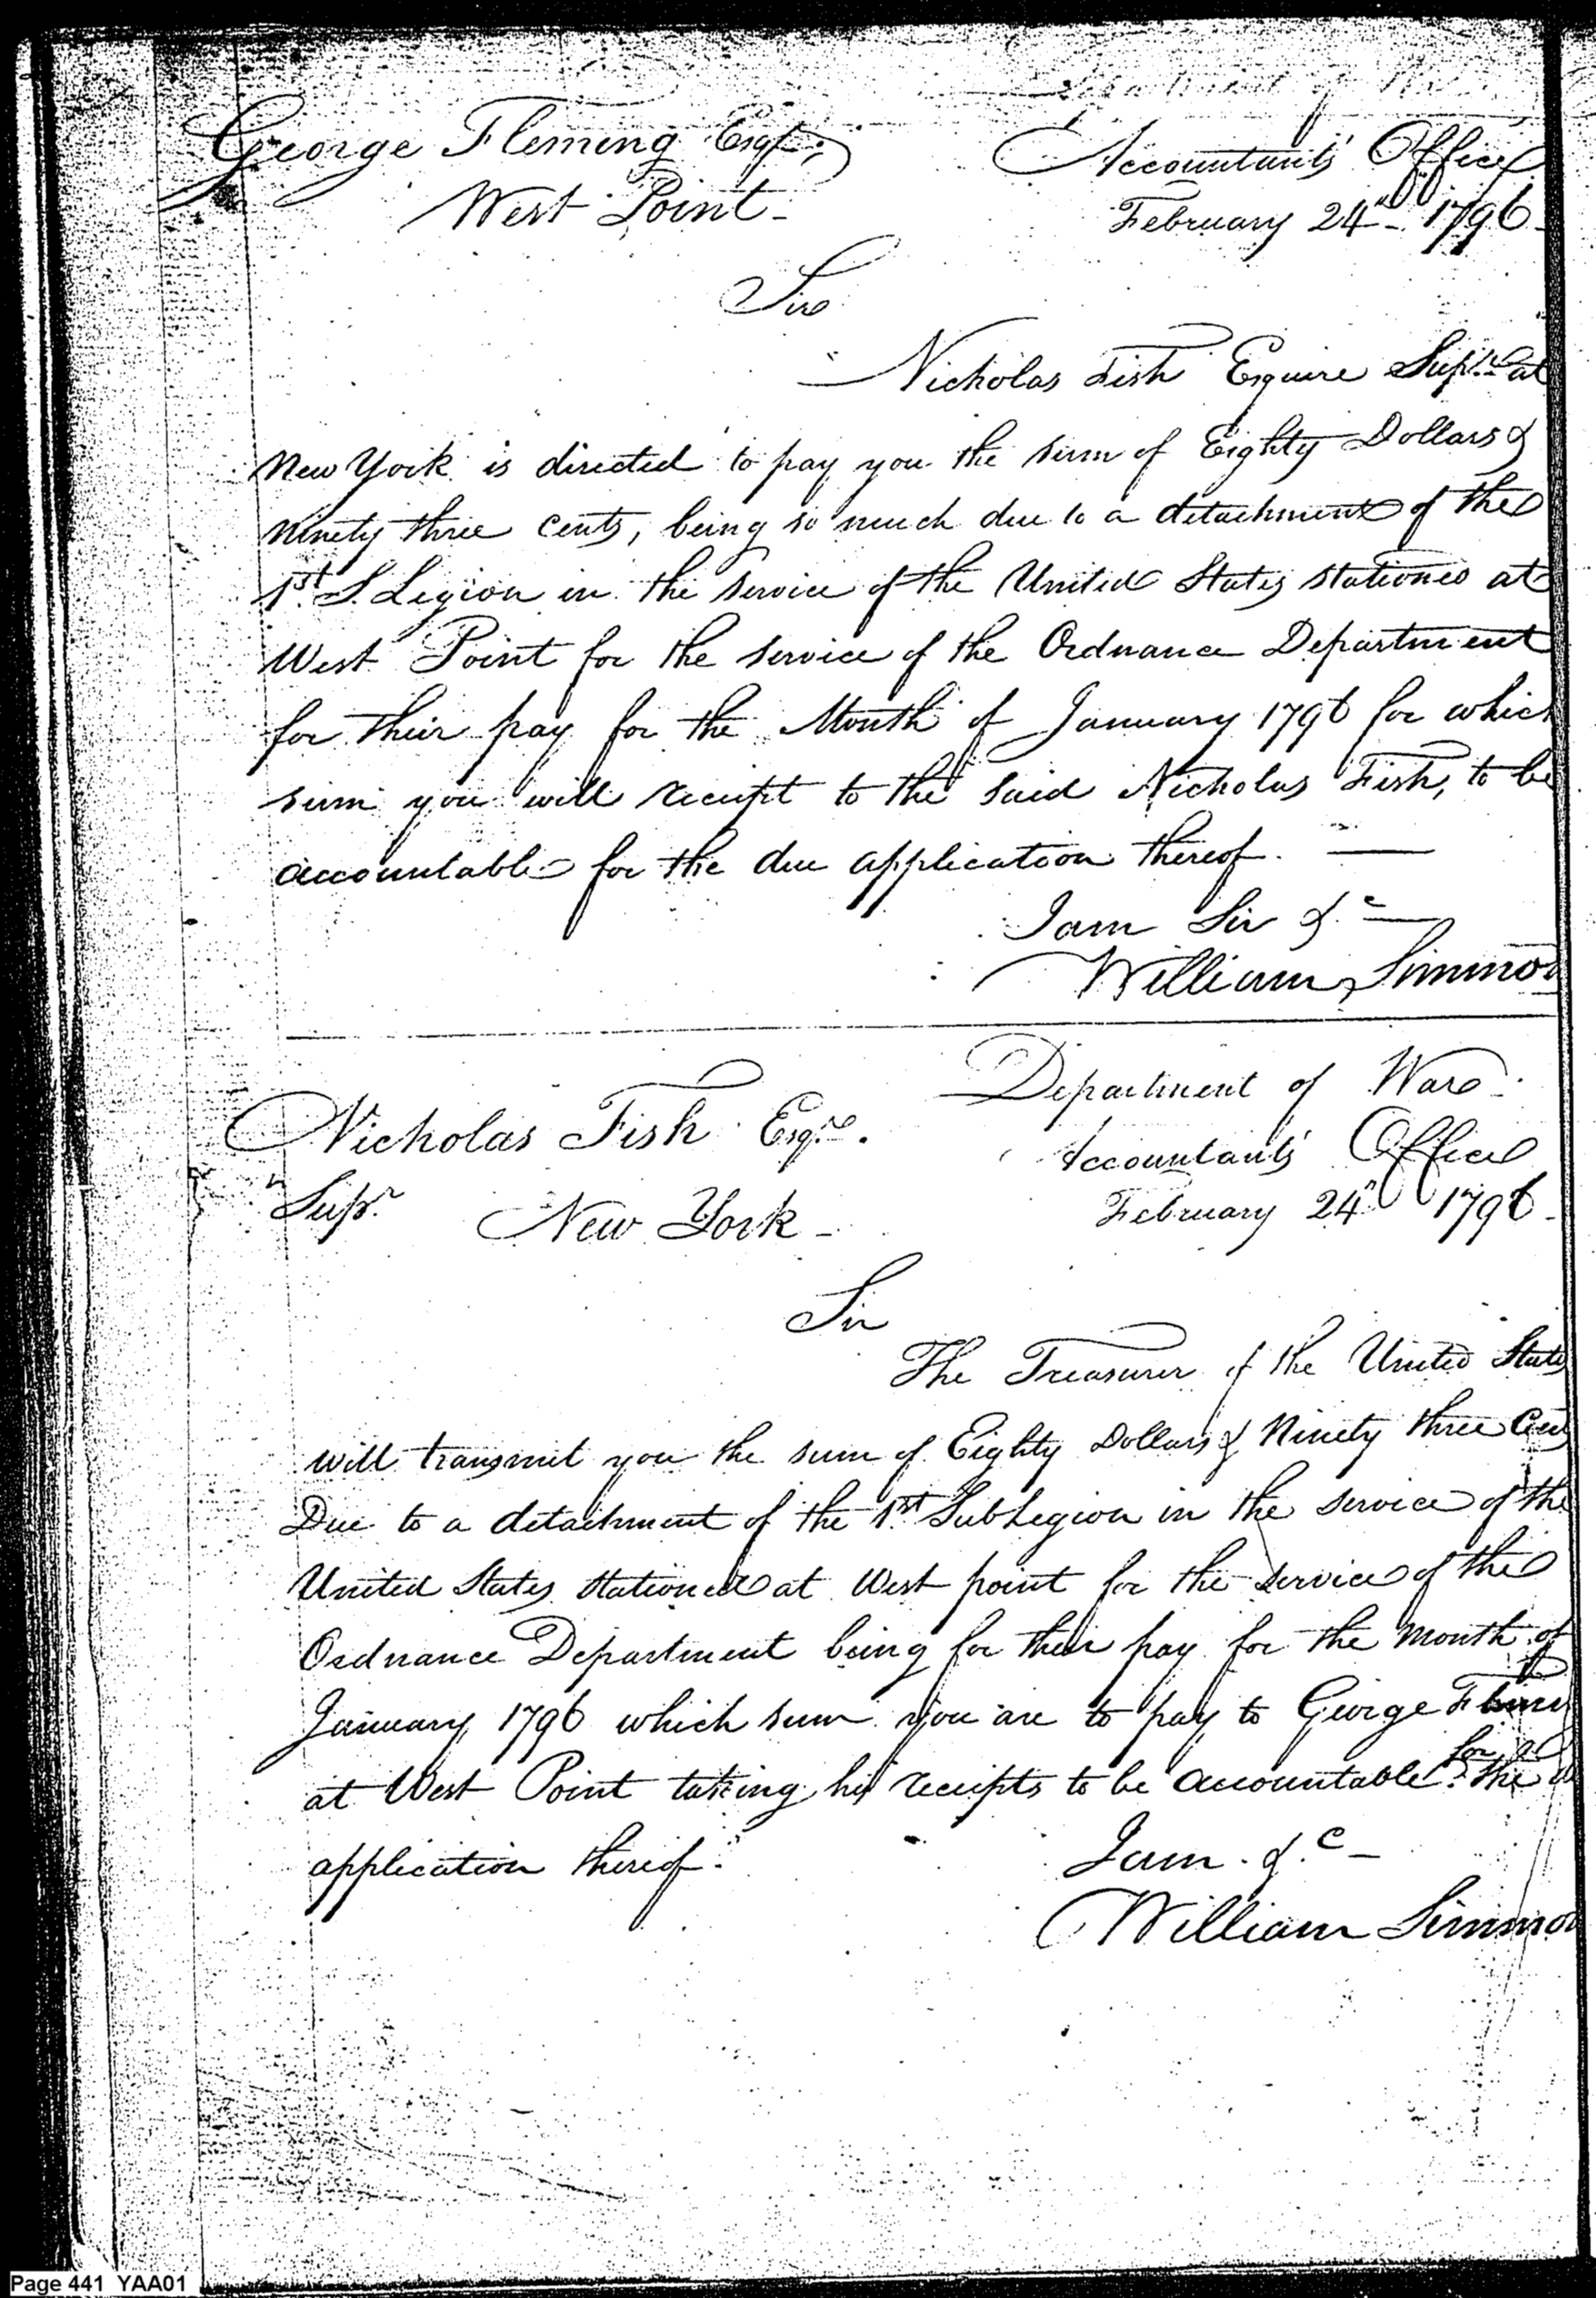 Department of War
George Fleming Esqr.
Accountants Office
West Point -
February 24th. 1796 -
Sir
Nicholas Fish Esquire Supr. at
New York is directed to pay you the sum of Eighty Dollars &
Ninety three Cents, being so much due to a detachment of the
1st. S. Legion in the service of the United States stationed at
West Point for the service of the Ordnance Department
for their pay for the Month of January 1796 for which
sum you will receipt to the said Nicholas Fish, to be
accountable for the due application thereof.
I am Sir &c
William Simmo
Department of War
Nicholas Fish Esqre.
Accountants Office
Supr.
New York -
February 24th 1796 -
Sir
The Treasurer of the United States
will transmit you the sum of Eighty Dollars & Ninety three
Due to a detachment of the 1st. Sub Legion in the service of the
United States Stationed at West point for the service of the
Ordnance Department being for their pay for the month of
January 1796 which sum you are to pay to George
at West Point taking his receipts to be accountable for the
application thereof.
I am &c -
William Simmo
Page 441 YAA01